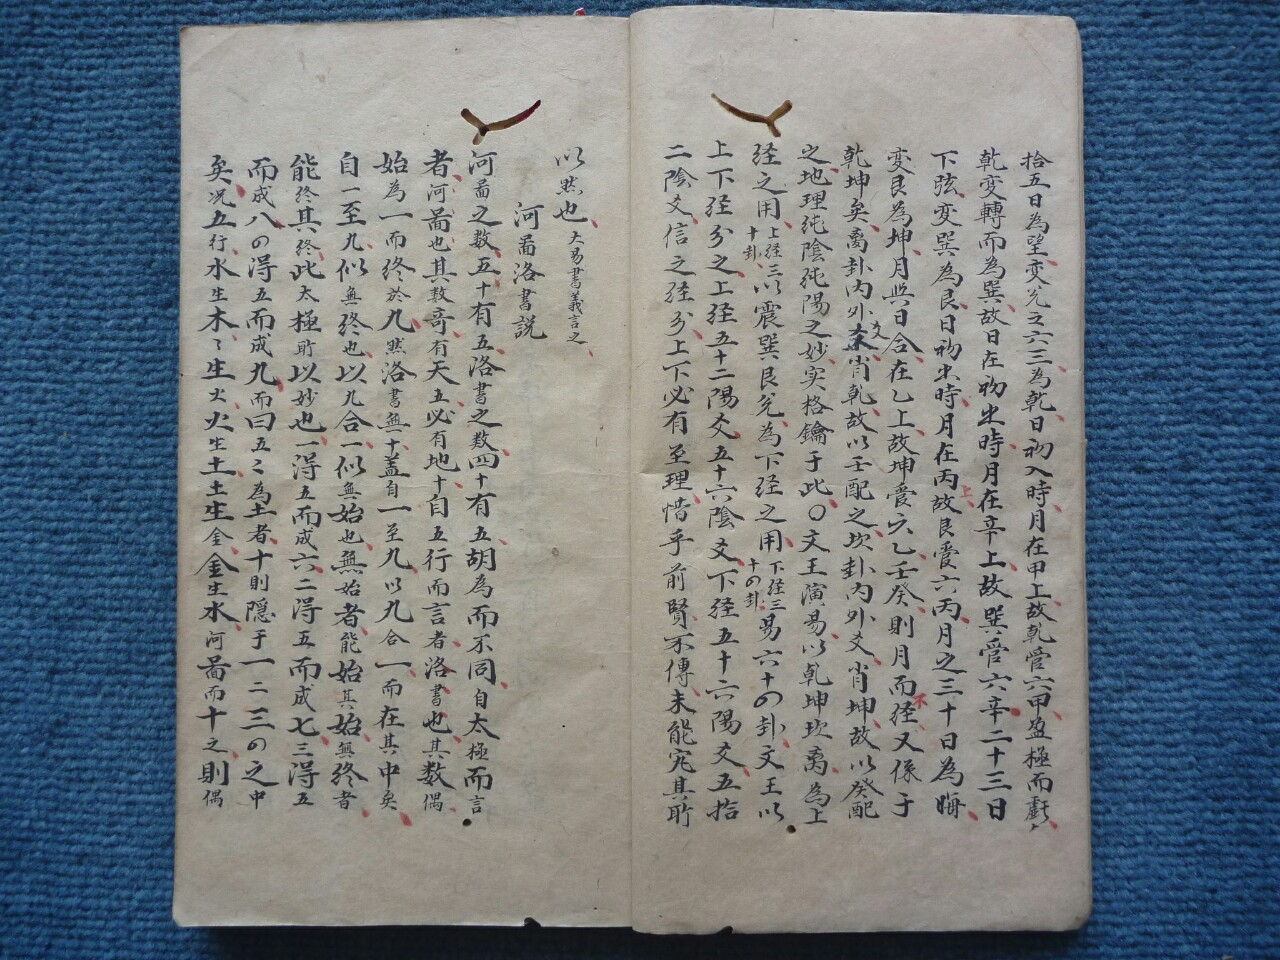 拾五日為望变兑之六三為乾日初入時月在甲上故乾管六甲盈極而虧〻
乾变轉而為巽故日在初出時月在辛上故巽管六辛二十三日
下弦变巽為艮日初出時月在丙上故艮管六丙月之三十日為晦
变艮為坤月與日合在乙上故坤管六乙壬癸則月不而經又係于
乾坤矣离卦内外爻肖乾故以壬配之坎卦内外爻肖坤故以癸配
之地理纯陰纯陽之妙实格鑰于此〇文王演易以乾坤坎离為上
经之用上经三十卦以震巽艮兑為下经之用下经三十四卦易六十四卦文王以
上下经分之上经五十二陽爻五十六陰爻下经五十六陽爻五拾
二陰爻信之经分上下必有至理惜乎前賢不傳未能究其所
以然也大易書義言之
河啚洛書説
河啚之数五十有五洛書之数四十有五胡為而不同自太極而言
者河啚也其数竒有天五必有地十自五行而言者洛書也其数偶
始為一而終於九然洛書無十盖自一至九以九合一而在其中矣
自一至九似無終也以九合一似無始也無始者能始其始無終者
能終其終此太極所以妙也一得五而成六二得五而成七三得五
而成八四得五而成九而曰五之為土者十則隱于一二三四之中
矣况五行水生木〻生火火生土土生金金生水河啚而十之則偶